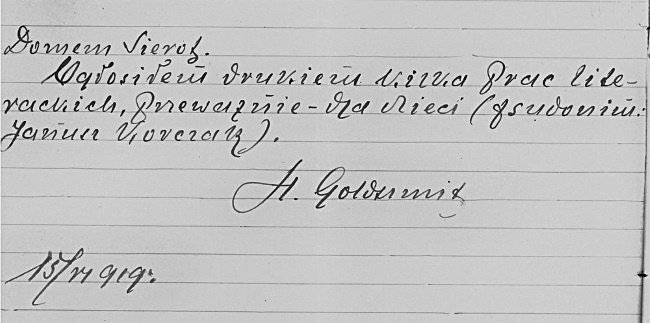 Domem Sierot.
Ogłosiłem drukiem kilka prac lite-
rackich, przeważnie - dla dzieci (pseudonim:
Janusz Korczak).
H. Goldszmit
15/VI 919r.